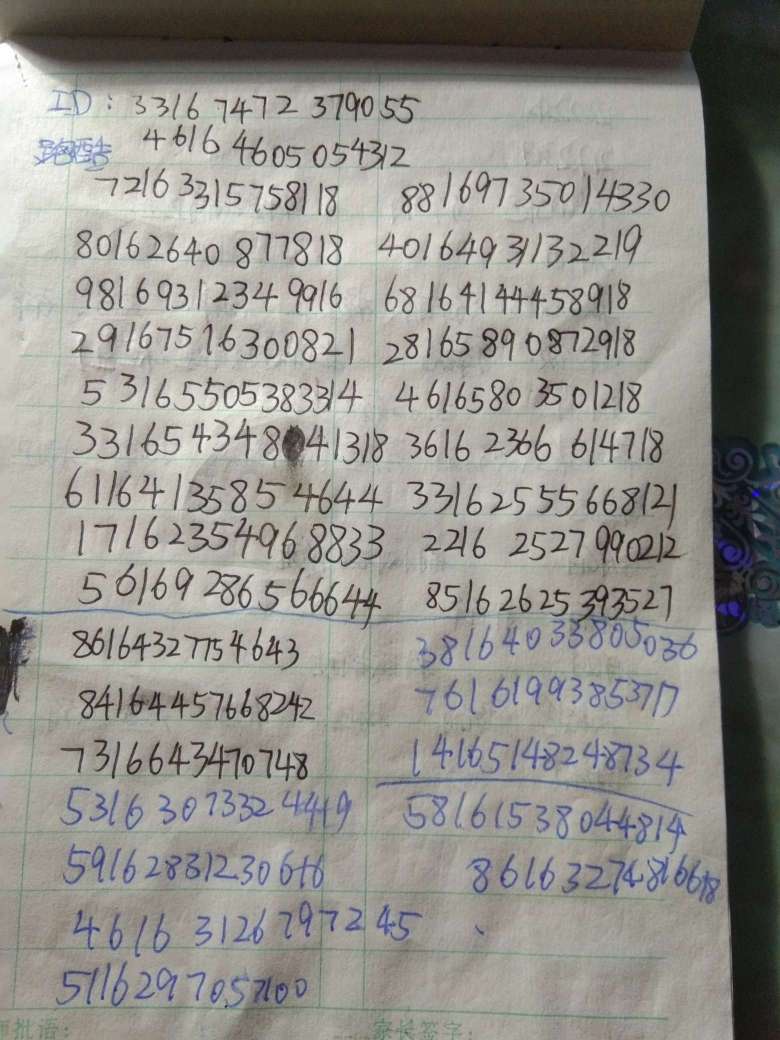 ID: 33167472379055
跑酷 46164605054312
72163315758118 88169735014330
80162640877818 40164931132219
98169312349916 68164144458918
29167516300821 28165890872918
53165505383314 46165803501218
331654348 41318 36162366614718
61164135854644 33162555668121
17162354968833 22162527990212
56169286566644 85162625393527
86164327754643 38164033805036
84164457668242 76161993853717
7316643470748 14165148248734
53163073324449 58161538044814
59162831230616
46163126797245
5116297057100
师批语: 家长签字: